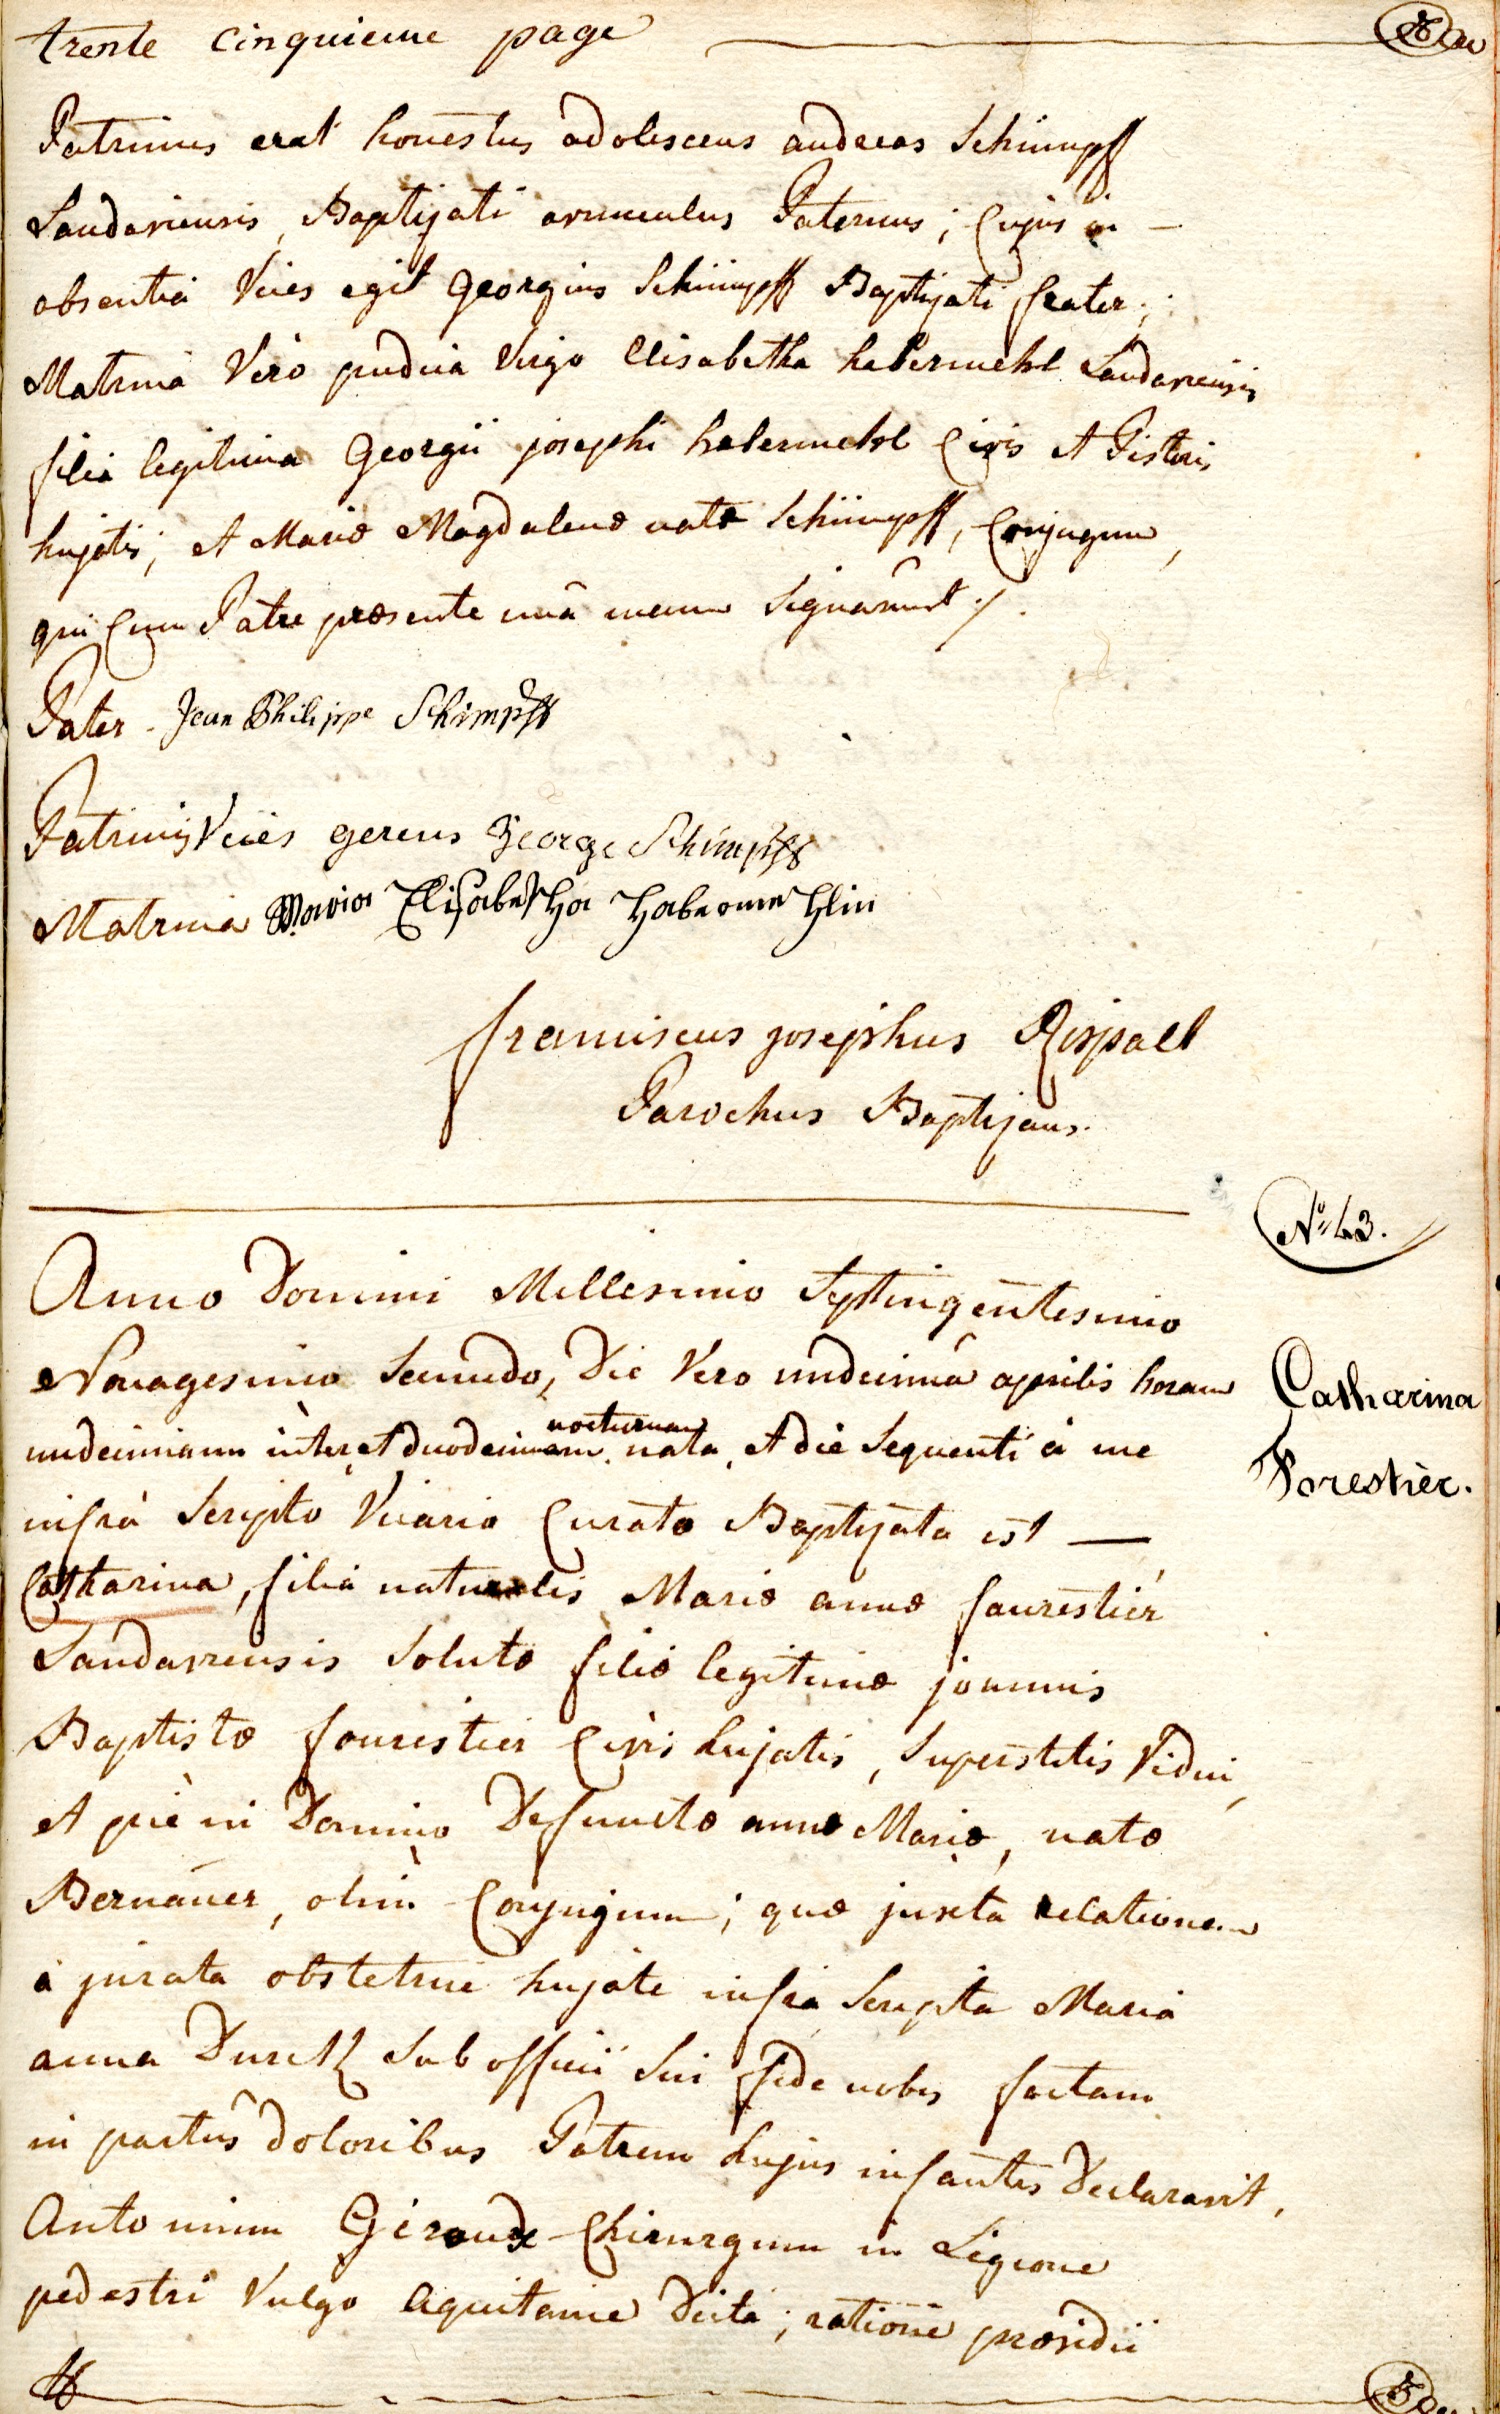 trente cinquieme page
Patrinus erat honestus adolescens andreas Schimpff
Landaviensis, Baptizati avunculus Paternus; Cujus in
absentiâ Vices egit Georgius Schimpff Baptizati frater;
Matrina Verò pudica Virgo Elisabetha habermehl Landaviensis
filia legitima Georgii josephi habermehl Civis et Pistoris
hujatis; et Mariæ Magdalenæ natæ Schimpff, Conjugum,
qui Cum Patre præsente unâ mecum Signarûnt ./.
Pater. Jean Philippe Schimpff
Patrini Vices gerens George Schimpff
Matrina Maria Elisabetha Habermehlin
franciscus josephus
Parochus Baptizans.
N.º 43.
Anno Domini Millesimo Septingentesimo
Nonagesimo Secundo, Die Vero undecimâ aprilis horam
nocturnam
undecimam inter et duodecimam nata, et die Sequenti à me
infrà Scripto Vicario Curato Baptizata est —
Catharina, filia naturalis Mariæ annæ faurestiér
Landaviensis Solutæ filiæ legitimæ joannis
Baptistæ fourestier Civis hujatis, Superstitis Vidui,
et piè in Domino Defunctæ annæ Mariæ, natæ
Bernauer, olim Conjugum; quæ juxta relationem
à jurata obstetrice hujate infrà Scripta Maria
anna Sub officii Sui fide nobis factam
in partûs doloribus Patrem hujus infantis Declaravit,
Antonium Giraude Chirurgum in Legione
pedestri Vulgo aquitaine Dicta; ratione præsidii
Catharina
Forestièr.